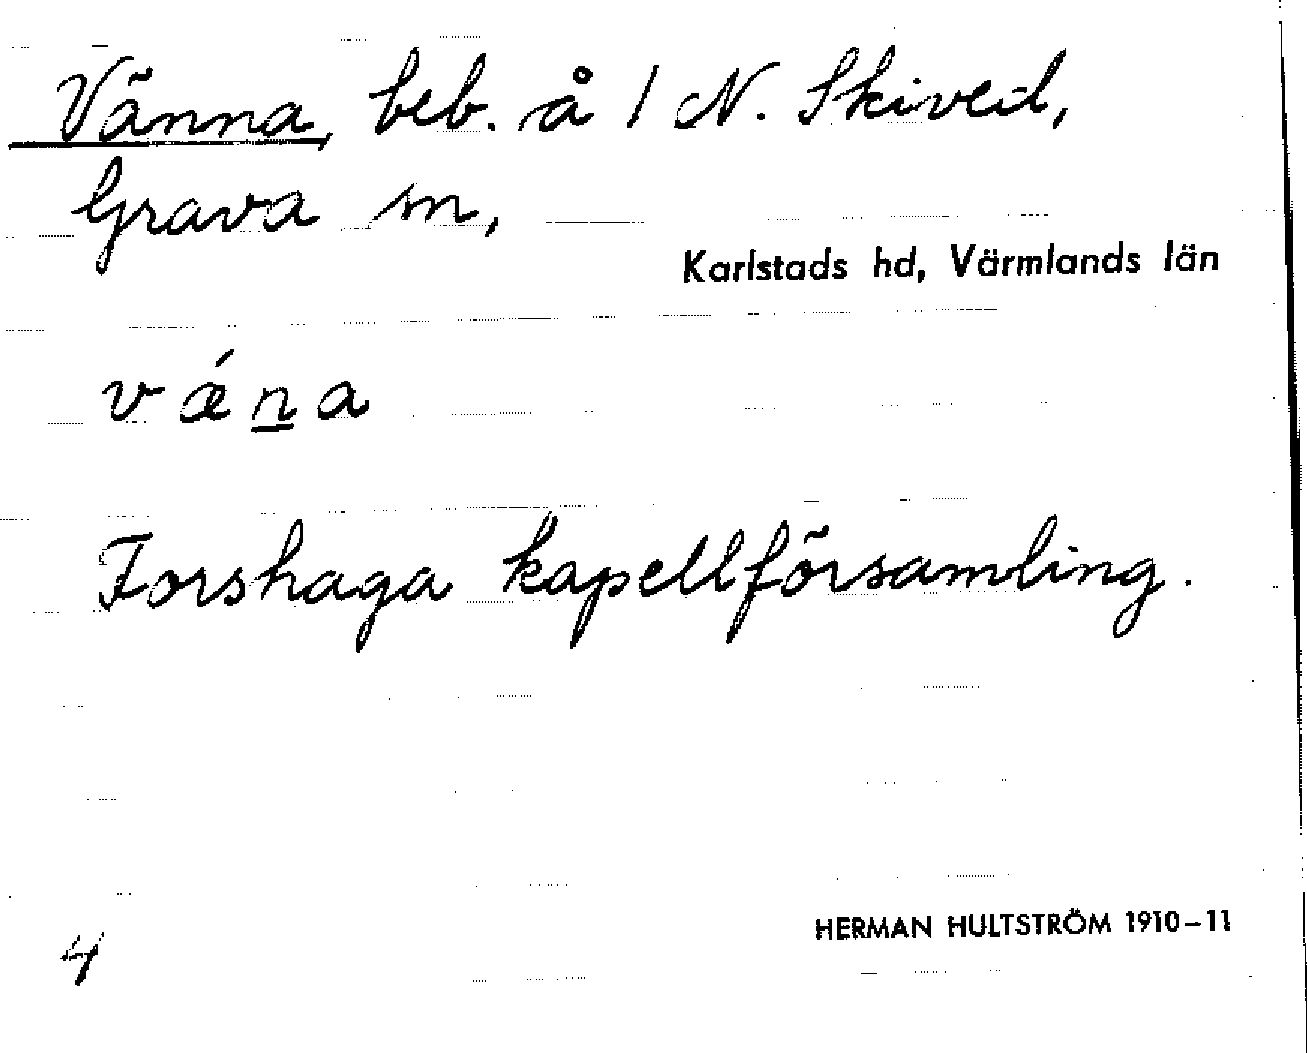 Vänna, beb. å 1 N. Skived,
Grava sn,
Karlstads hd, Värmlands län
v ǽ n a
Forshaga kapellförsamling.
HERMAN HULTSTRÖM 1910–11
4